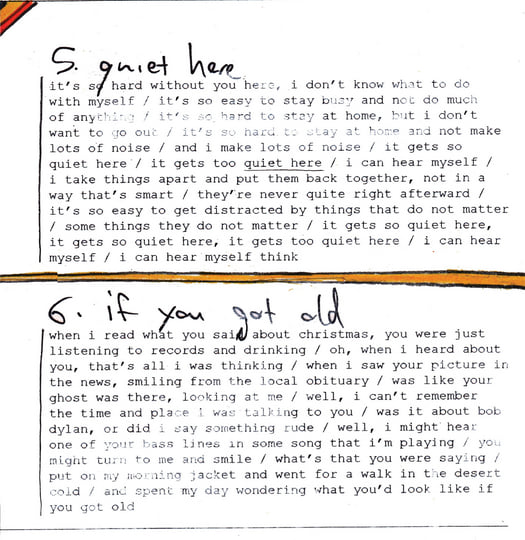 5. quiet here
it's so hard without you here, i don't know what to do
with myself / it's so easy to stay busy and not do much
of anything / it's so hard to stay at home, but i don't
want to go out / it's so hard to stay at home and not make
lots of noise / and i make lots of noise / it gets so
quiet here / it gets too quiet here / i can hear myself /
i take things apart and put them back together, not in a
way that's smart / they're never quite right afterward /
it's so easy to get distracted by things that do not matter
/ some things they do not matter / it gets so quiet here,
it gets so quiet here, it gets too quiet here / i can hear
myself / i can hear myself think
6. if you got old
when i read what you said about christmas, you were just
listening to records and drinking / oh, when i heard about
you, that's all i was thinking / when i saw your picture in
the news, smiling from the local obituary / was like your
ghost was there, looking at me / well, i can't remember
the time and place i was talking to you / was it about bob
dylan, or did i say something rude / well, i might hear
one of your bass lines in some song that i'm playing / you
might turn to me and smile / what's that you were saying /
put on my morning jacket and went for a walk in the desert
cold / and spent my day wondering what you'd look like if
you got old